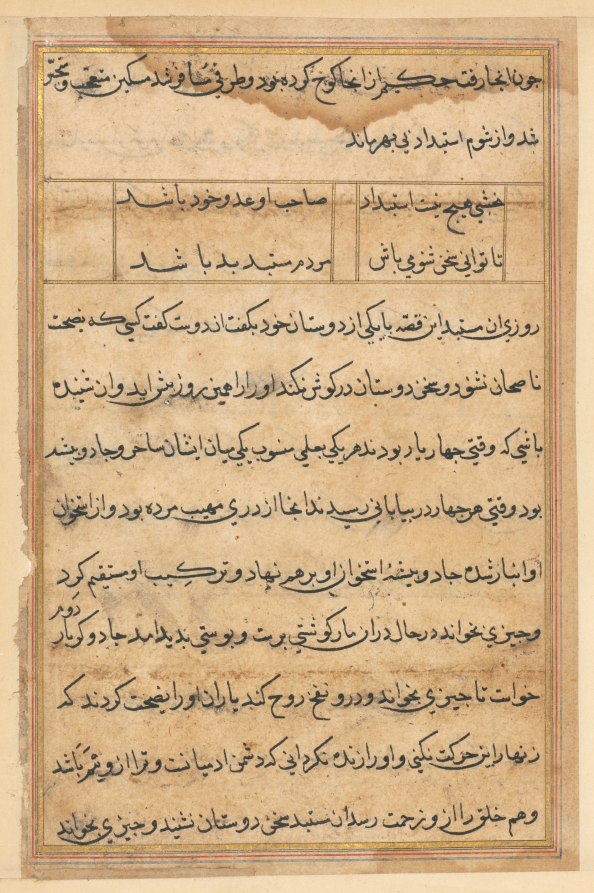 چون انجا رفت حکیم از انجا کوچ کرده بود و طرفی مسافر شد مسکین متعجب و متحیر
شد و از شوم استبداد بی بهر ماند
نخشبی هیچ نیست استبداد صاحب او عدو خود باشد
تا توانی سخن شنو می باش مردم مستبد بد باشد
روزی ان مستبد این قصه با یکی از دوستان خود بگفت ان دوست گفت کسی که نصیحت
ناصحان نشنود و سخن دوستان در گوش نکند او را همین روز پیش اید و ان شنیده
باشی که وقتی چهار یار بودند هر یکی بعلمی منسوب یکی میان ایشان ساحر و جادو پیشه
بود وقتی هر چهار در بیابانی رسیدند انجا اژدری مهیب مرده بود و از استخوان
او انبار شده جادو پیشه استخوان او بر هم نهاد و ترکیب او مستقیم کرد
و چیزی بخواند در حال در ان مار گوشتی برست و پوستی پدید امد جادوگر بار دوم
خواست تا چیزی بخواند و درو نفخ روح کند یاران او را نصیحت کردند که
زنهار این حرکت نکنی و او را زنده نگردانی که دشمن ادمیانست و ترا ازو ثمر باشد
و هم خلق را ازو زحمت رسد ان مستبد سخن دوستان نشنید و چیزی بخواند